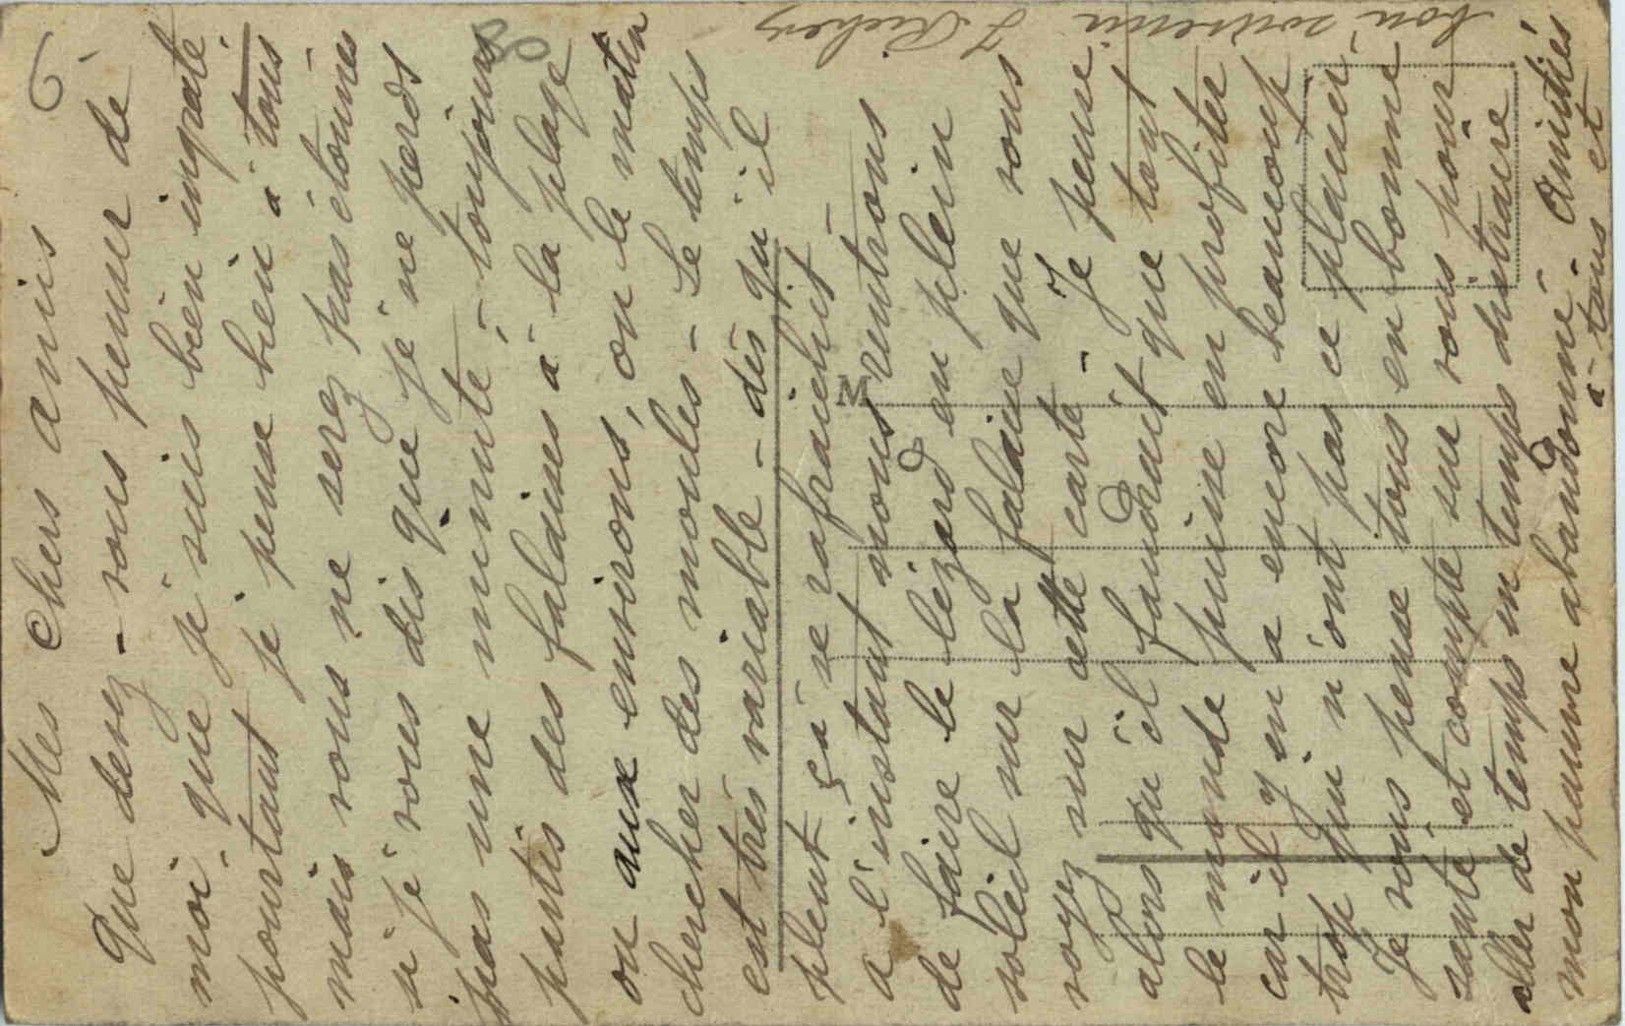 Mes chers amis
Que devez-vous penser de
moi que je suis bien ingrate
pourtant je pense bien à tous
mais vous ne serez pas étonnés
si je vous dis que je ne perds
pas une minute - toujours
partis des falaises à la plage
ou aux environs, ou le matin
chercher des moules - Le temps
est très variable - dès qu'il
pleut ça se rafraichit -
a l'instant nous rentrons
de faire le lézard en plein
soleil sur la falaise que vous
voyez sur cette carte - Je pense
alors qu'il faudrait que tout
le monde puisse en profiter
car il y en a encore beaucoup
trop qui n'ont pas ce plaisir.
Je vous pense tous en bonne
santé et compte sur vous pour
aller de temps en temps distraire
mon pauvre abandonné - Amitiés
à tous et
bon souvenir J Richez
6
M